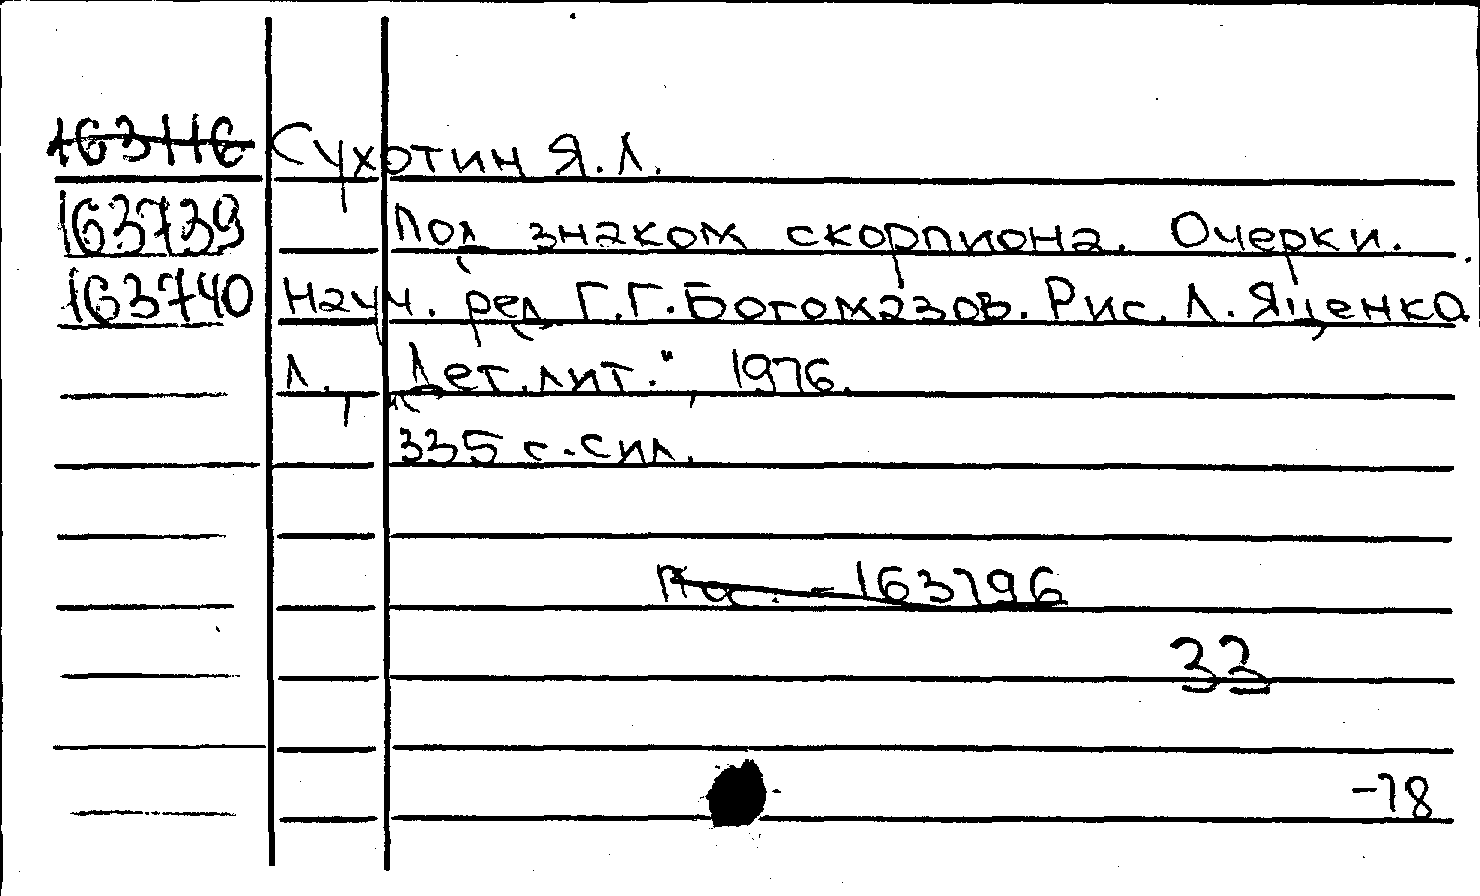 163116 Сухотин Я.Л.
163739 Под знаком скорпиона. Очерки.
163740 Науч. ред Г.Г.Богомазов. Рис. Л. Яценка.
Л., „Дет.лит.", 1976.
335 с. с ил.
Пос. - 163796
33
-78